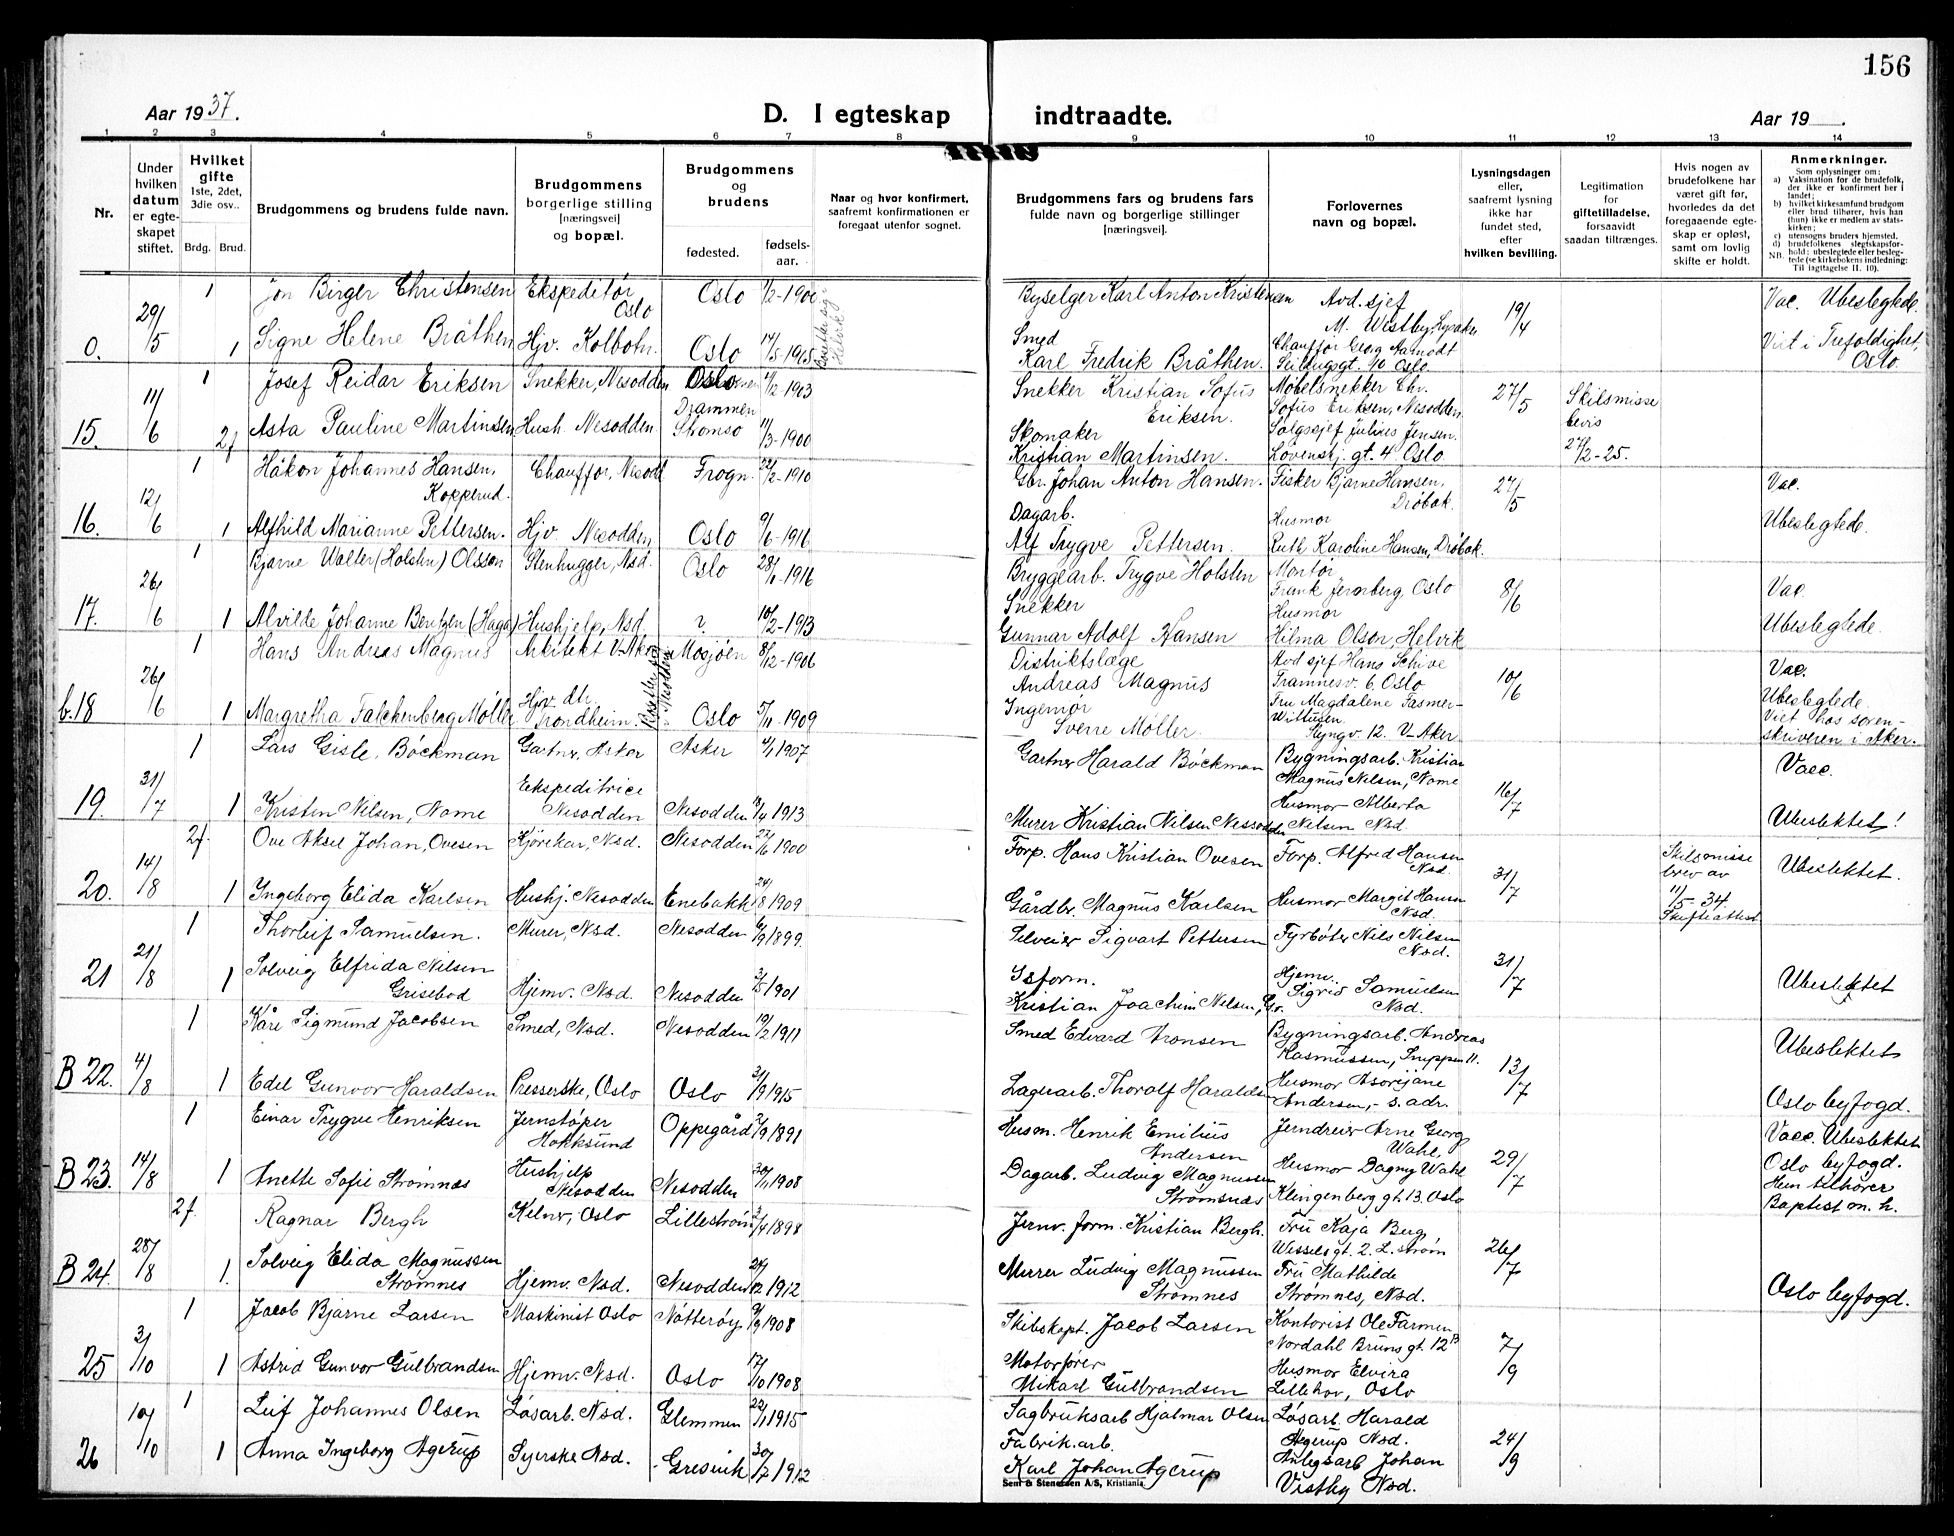 156
Aar 1937.
D. I egteskap indtraadte.
Aar 19 .
1 2 3 4 5 6 7 8 9 10 11 12 13 14
Nr.
Under hvilken datum er egteskapet stiftet.
Hvilket gifte 1ste, 2det, 3die osv..
Brdg. Brud.
Brudgommens og brudens fulde navn.
Brudgommens borgerlige stilling [næringsvei] og bopæl.
Brudgommens og brudens
fødested. fødselsaar.
Naar og hvor konfirmert, saafremt konfirmationen er foregaat utenfor sognet.
Brudgommens fars og brudens fars fulde navn og borgerlige stillinger [næringsvei].
Forlovernes navn og bopæl.
Lysningsdagen eller, saafremt lysning ikke har fundet sted, efter hvilken bevilling.
Legitimation for giftetilladelse, forsaavidt saadan tiltrænges.
Hvis nogen av brudefolkene har været gift før, hvorledes da det foregaaende egteskap er opløst, samt om lovlig skifte er holdt.
Anmerkninger.
Som oplysninger om:
a) Vaksination for de brudefolk, der ikke er konfirmert her i landet;
b) hvilket kirkesamfund brudgom eller brud tilhører, hvis han (hun) ikke er medlem av statskirken;
c) utensogns bruders hjemsted.
d) brudefolkenes slegtskapsforhold: ubeslegtede eller beslegtede (se kirkebokens indledning:
NB. Til iagttagelse II. 10).
0. 29/5 1 Jon Birger Christensen Ekspeditør Oslo Oslo 1/2-1900 Byselger Karl Anton Kristensen Avd. sjef M. Westby, Lysaker 19/4 Vac. Ubeslegtede.
1 Signe Helene Bråthen Hjv. Kolbotn. Oslo 14/5-1915 Smed Karl Fredrik Bråthen. Chauffør Georg Aamodt Seildugsgt. 10 Oslo. Viet i Trefoldighet, Oslo.
15. 11/6 1 Josef Reidar Eriksen Snekker, Nesodden Oslo 4/2 1903 Snekker Kristian Sofus Eriksen. Møbelsnekker Chr. Sofus Eriksen, Nesodden. 27/5 Skilsmisse bevis 27/2-25.
2f Asta Pauline Martinsen Hush. Nesodden. Drammen Strømsø 11/3-1900 Skomaker Kristian Martinsen. Salgssjef Julius Jensen. Løvenskj. gt. 4 Oslo.
16. 12/6 1 Håkon Johannes Hansen, Kopperud. Chauffør, Nesodd Frogn. 22/2-1910 Gbr. Johan Anton Hansen. Fisker Bjarne Hansen, Drøbak. 27/5 Vac.
1 Alfhild Marianne Pettersen. Hjv. Nesodden Oslo 9/6-1916 Dagarb. Alf Trygve Pettersen. Husmor Ruth Karoline Hansen, Drøbak. Ubeslegtede.
17. 26/6 1 Bjarne Walter (Holsten) Olsson Stenhugger, Nsd. Oslo 28/1-1916 Bryggearb. Trygve Holsten Montør Frank Jernberg, Oslo 8/6 Vac.
1 Alvilde Johanne Bentzen (Haga) Hushjelp, Nsd. ? 10/2-1913 Snekker Gunnar Adolf Hansen Husmor Hilma Olson, Helvik Ubeslegtede.
b.18 26/6 1 Hans Andreas Magnus Arkitekt V-Aker Mosjøen 8/12-1906 Distriktslæge Andreas Magnus Avd sjef Hans Schive Framnesv. 6. Oslo 10/6 Vac.
1 Margretha Falckenberg Møller Hjv. dtr. Trondheim. Oslo 5/11-1909 Ingeniør Sverre Møller Fru Magdalene Fasmer-Wiltusen. Lyngv. 12. V-Aker Ubeslegtede. Viet hos sorenskriveren i Aker.
19. 31/7 1 Lars Gisle, Böckman Gartner, Asker Asker 4/1 1907 Gartner Harald Böckman Bygningsarb. Kristian Magnus Nilsen, Nome 16/7 Vacc.
1 Kristen Nilsen, Nome Ekspeditrice Nesodden Nesodden 13/4 1913 Murer Kristian Nilsen Nesodden Husmor Alberta Nilsen Nsd. Ubeslektet!
20. 14/8 2f. Ove Aksel Johan, Ovesen Kjørekar, Nsd. Nesodden 22/6 1900 Forp. Hans Kristian Ovesen Forp. Alfred Hansen Nsd. 31/7 Skilsmisse brev av 11/5-34. Skifteattest Ubeslektet.
1 Ingeborg Elida Karlsen Hushj. Nesodden Enebakk 24/8 1909 Gårdbr. Magnus Karlsen Husmor Margit Hansen Nsd.
21 21/8 1 Thorleif Samuelsen. Murer, Nsd. Nesodden 6/9 1899. Selveier Sigvart Pettersen Fyrbøter Nils Nilsen Nsd. 31/7 Ubeslektet
1 Solveig Elfrida Nilsen Grisebod Hjemv. Nsd. Nesodden 3/5 1901 Isform. Kristian Joachim Nilsen, Gr. Hjemv. Sigrid Samuelsen Nsd.
B 22. 4/8 1 Kåre Sigmund Jacobsen Smed, Nsd. Nesodden 19/2 1911 Smed Edvard Aronsen Bygningsarb. Andreas Rasmussen, Snippen 11. 13/7 Ubeslektet
1 Edel Gunvor Haraldsen Presserske, Oslo Oslo 31/9 1915 Lagerarb. Thoralf Haraldsen Husmor Asorijane Andersen,- s. adr. Oslo byfogd.
B 23. 14/8 1 Einar Trygve Henriksen Jernstøper Hokksund Oppegård 2/9 1891 Husm. Henrik Emilius Andersen Jerndreier Arne Georg Wahl, 29/7 Vacc. Ubeslektet
1 Anette Sofie Strømnæs Hushjelp Nesodden Nesodden 30/11 1908 Dagarb. Ludvig Magnussen Strømsnæs Husmor Dagny Wahl Klingenberg gt. 13. Oslo Oslo byfogd. Hun tilhører Baptist m. h.
B 24. 28/8 2f. Ragnar Bergh Kelner, Oslo Lillestrøm 2/4 1898 Jernv. form. Kristian Bergh. Fru Kaja Berg Wessels gt. 2. L. strøm 26/7
1. Solveig Elida Magnussen Strømnes Hjemv. Nsd. Nesodden 24/12 1912 Murer Ludvig Magnussen Strømnes Fru Mathilde Strømnes, Nsd. Oslo byfogd.
25 3/10 1 Jacob Bjarne Larsen Maskinist Oslo Nøtterøy 9/9 1908 Skibskapt. Jacob Larsen Kontorist Ole Farmen Nordahl Bruns gt. 12 B 7/9
1 Astrid Gunvor Gulbrandsen Hjemv. Nsd. Oslo 17/10 1908 Motorfører Mikael Gulbrandsen Husmor Elvira Lillehov, Oslo
26 10/10 1 Leif Johannes Olsen Løsarb. Nsd. Glemmen 22/11 1915 Sagbruksarb Hjalmar Olsen Løsarb. Harald Agerup Nsd. 24/9
1 Anna Ingeborg Agerup Syerske Nsd. Gresvik 30/7 1912 Fabrik.arb. Karl Johan Agerup Anlegsarb Johan Vestby Nsd.
Sem & Stenersen A/S, Kristiania